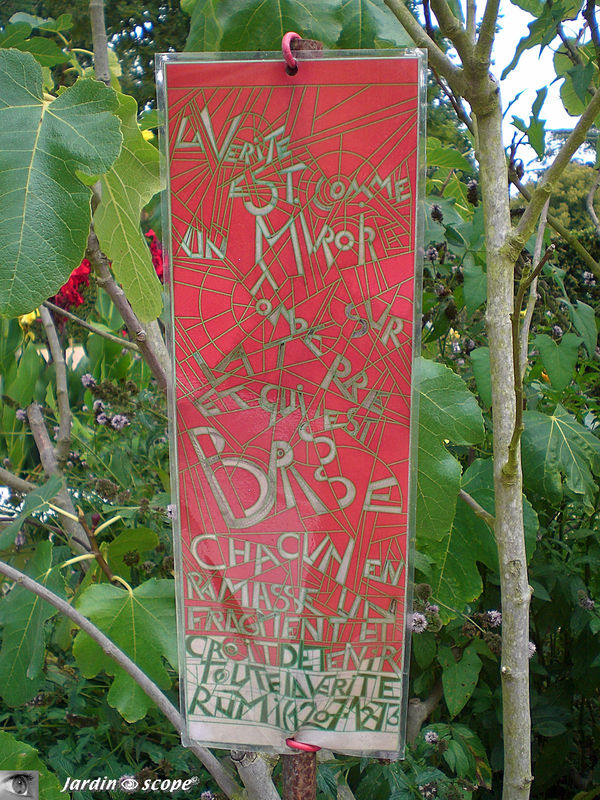 LA VERITE
EST COMME
UN MIROIR
TOMBE SUR
LA TERRE
ET QUI S'EST
BRISE
CHACUN EN
RAMASSE UN
FRAGMENT ET
CROIT DETENIR
TOUTE LA VERITE
RUMI (1207-1273
Jardin scope